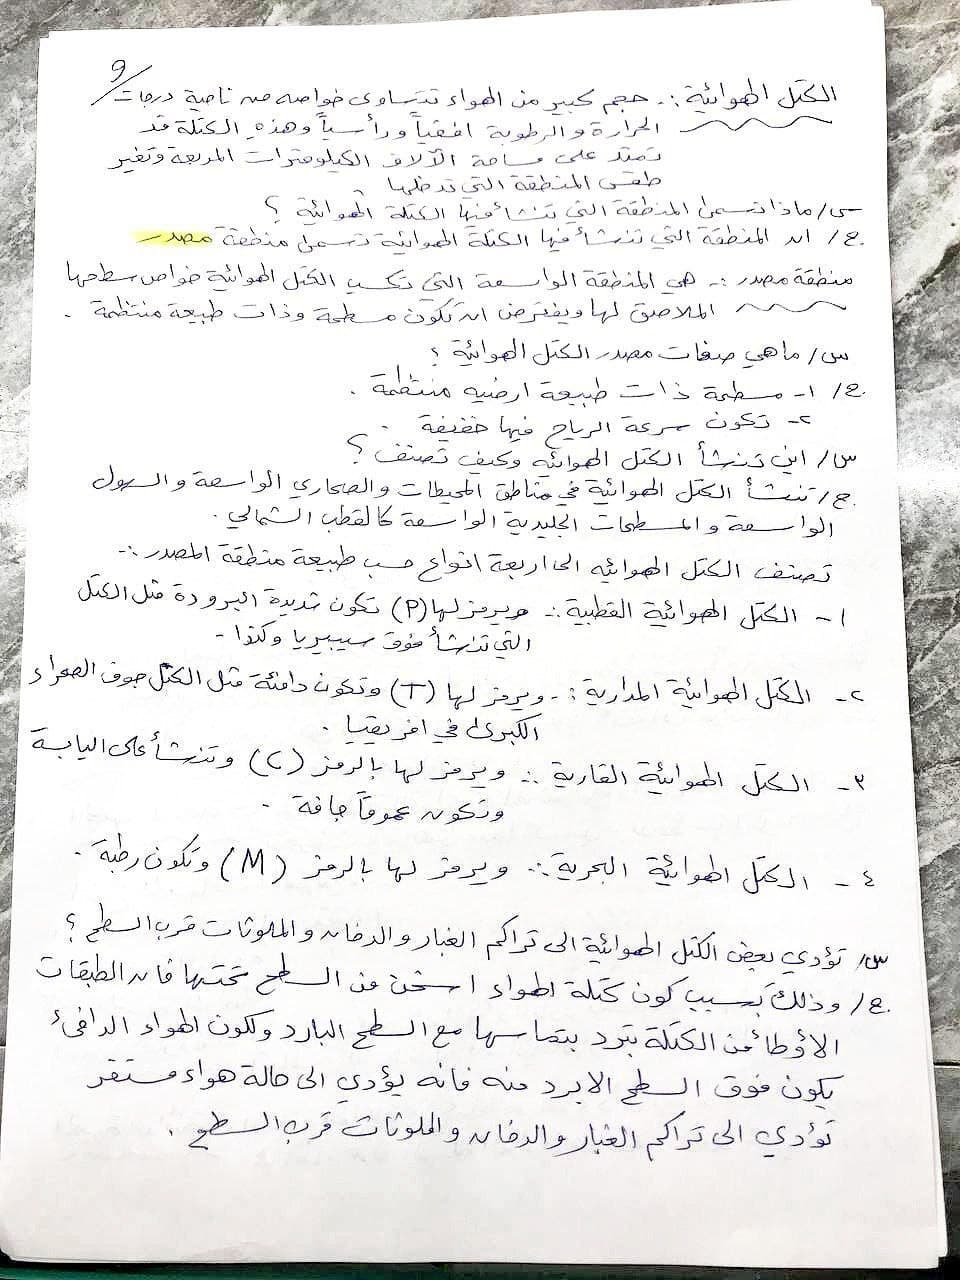 ٩/
الكتل الهوائية :- حجم كبير من الهواء تتساوى خواصه من ناحية درجات
الحرارة والرطوبة افقياً ورأسياً وهذه الكتلة قد
تمتد على مساحة الآلاف الكيلومترات المربعة وتغير
طقس المنطقة التي تدخلها
س/ ماذا تسمى المنطقة التي تنشأ فيها الكتلة الهوائية ؟
ج/ ان المنطقة التي تنشأ فيها الكتلة الهوائية تسمى منطقة مصدر
منطقة مصدر :- هي المنطقة الواسعة التي تكسب الكتل الهوائية خواص سطحها
الملاصق لها ويفترض ان تكون مسطحة وذات طبيعة منتظمة .
س/ ما هي صفات مصدر الكتل الهوائية ؟
ج/ ١- مسطحة ذات طبيعة ارضيه منتظمة .
٢- تكون سرعة الرياح فيها خفيفة .
س/ اين تنشأ الكتل الهوائيه وكيف تصنف ؟
ج/ تنشأ الكتل الهوائية في مناطق المحيطات والصحاري الواسعة والسهول
الواسعة والمسطحات الجليدية الواسعة كالقطب الشمالي .
تصنف الكتل الهوائيه الى اربعة انواع حسب طبيعة منطقة المصدر :-
١- الكتل الهوائية القطبية :- ويرمز لها (P) تكون شديدة البرودة مثل الكتل
التي تنشأ فوق سيبيريا وكندا -
٢- الكتل الهوائية المدارية :- ويرمز لها (T) وتكون دافئة مثل الكتل جوف الصحراء
الكبرى في افريقيا .
٣- الكتل الهوائية القارية :- ويرمز لها بالرمز (C) وتنشأ على اليابسة
وتكون عموماً جافة .
٤- الكتل الهوائية البحرية :- ويرمز لها بالرمز (M) وتكون رطبة .
س/ تؤدي بعض الكتل الهوائية الى تراكم الغبار والدخان والملوثات قرب السطح ؟
ج/ وذلك بسبب كون كتلة الهواء اسخن من السطح تحتها فان الطبقات
الأوطأ من الكتلة تبرد بتماسها مع السطح البارد ولكون الهواء الدافئ
يكون فوق السطح الابرد منه فانه يؤدي الى حالة هواء مستقر
تؤدي الى تراكم الغبار والدخان والملوثات قرب السطح .